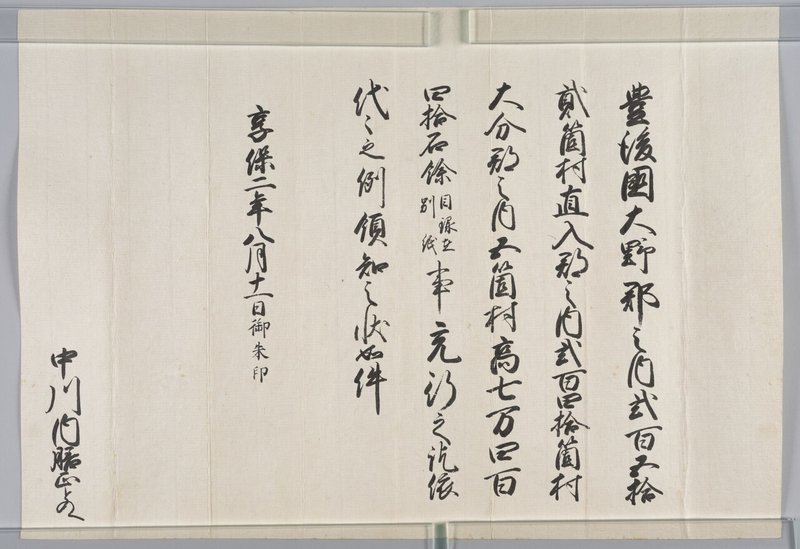 豊後國大野郡之内弐百五拾
貳箇村直入郡之内弐百四拾箇村
大分郡之内五箇村高七万四百
四拾石餘目録在別紙事充行之訖依
代々之例領知之状如件
享保二年八月十一日御朱印
中川内膳正との